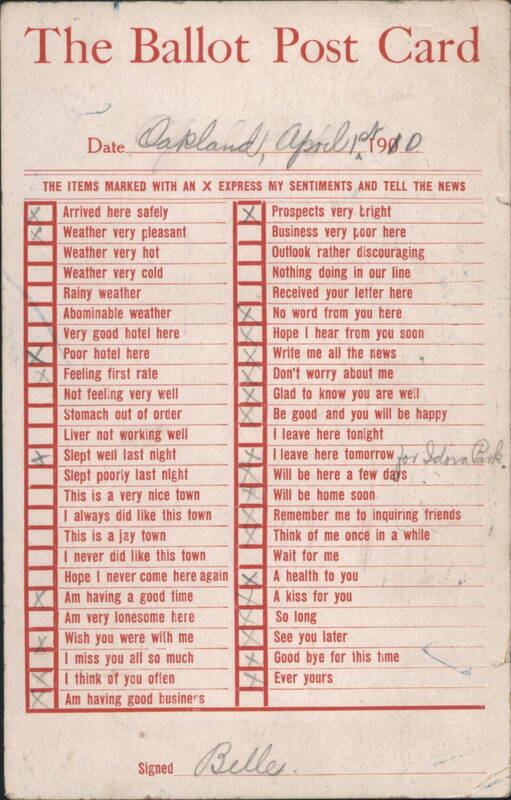 The Ballot Post Card
Date Oakland, April 1st 1910
THE ITEMS MARKED WITH AN X EXPRESS MY SENTIMENTS AND TELL THE NEWS
X Arrived here safely
X Weather very pleasant
Weather very hot
Weather very cold
Rainy weather
Abominable weather
Very good hotel here
X Poor hotel here
X Feeling first rate
Not feeling very well
Stomach out of order
Liver not working well
X Slept well last night
Slept poorly last night
This is a very nice town
I always did like this town
This is a jay town
I never did like this town
Hope I never come here again
X Am having a good time
Am very lonesome here
X Wish you were with me
I miss you all so much
X I think of you often
X Am having good business
X Prospects very bright
Business very poor here
Outlook rather discouraging
Nothing doing in our line
Received your letter here
X No word from you here
X Hope I hear from you soon
X Write me all the news
X Don't worry about me
X Glad to know you are well
X Be good and you will be happy
I leave here tonight
X I leave here tomorrow for Idora Park.
X Will be here a few days
X Will be home soon
X Remember me to inquiring friends
X Think of me once in a while
Wait for me
X A health to you
X A kiss for you
X So long
X See you later
X Good bye for this time
X Ever yours
Signed Belle.